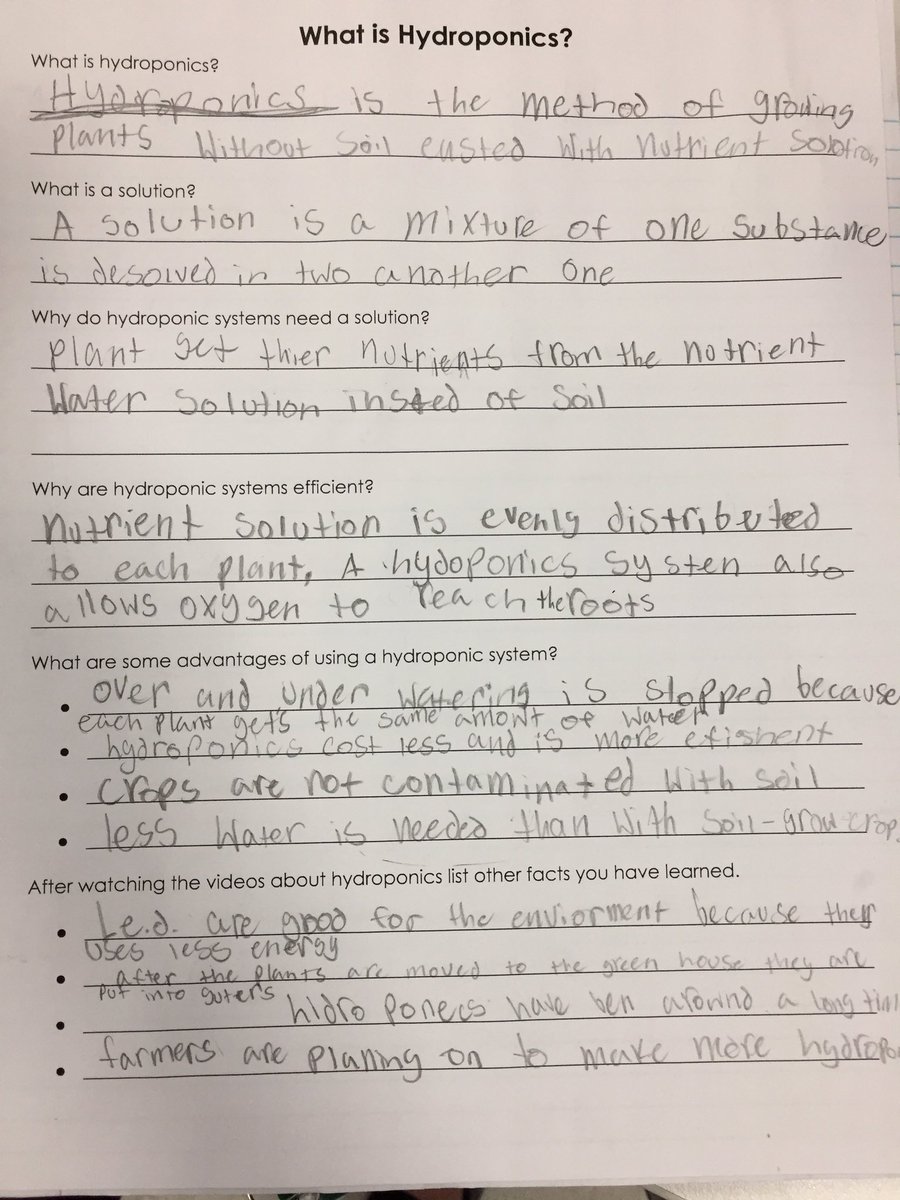 What is Hydroponics?
What is hydroponics?
Hydroponics is the method of growing
plants without soil eusted with nutrient solotion
What is a solution?
A solution is a mixture of one substance
is desolved in two another one
Why do hydroponic systems need a solution?
plant get thier nutrients from the notrient
water solution insted of soil
Why are hydroponic systems efficient?
nutrient solution is evenly distributed
to each plant, A hydoponics systen also
allows oxygen to reach the roots
What are some advantages of using a hydroponic system?
• over and under watering is stopped because
each plant gets the same amont of water
• hydroponics cost less and is more efishent
• crops are not contaminated with soil
• less water is needed than with soil-grow crop.
After watching the videos about hydroponics list other facts you have learned.
• L.e.d. are good for the enviorment because they
uses less energy
• After the plants are moved to the green house they are
put into guters
• hidro ponecs have ben around a long tim
• farmers are planing on to make more hydropo